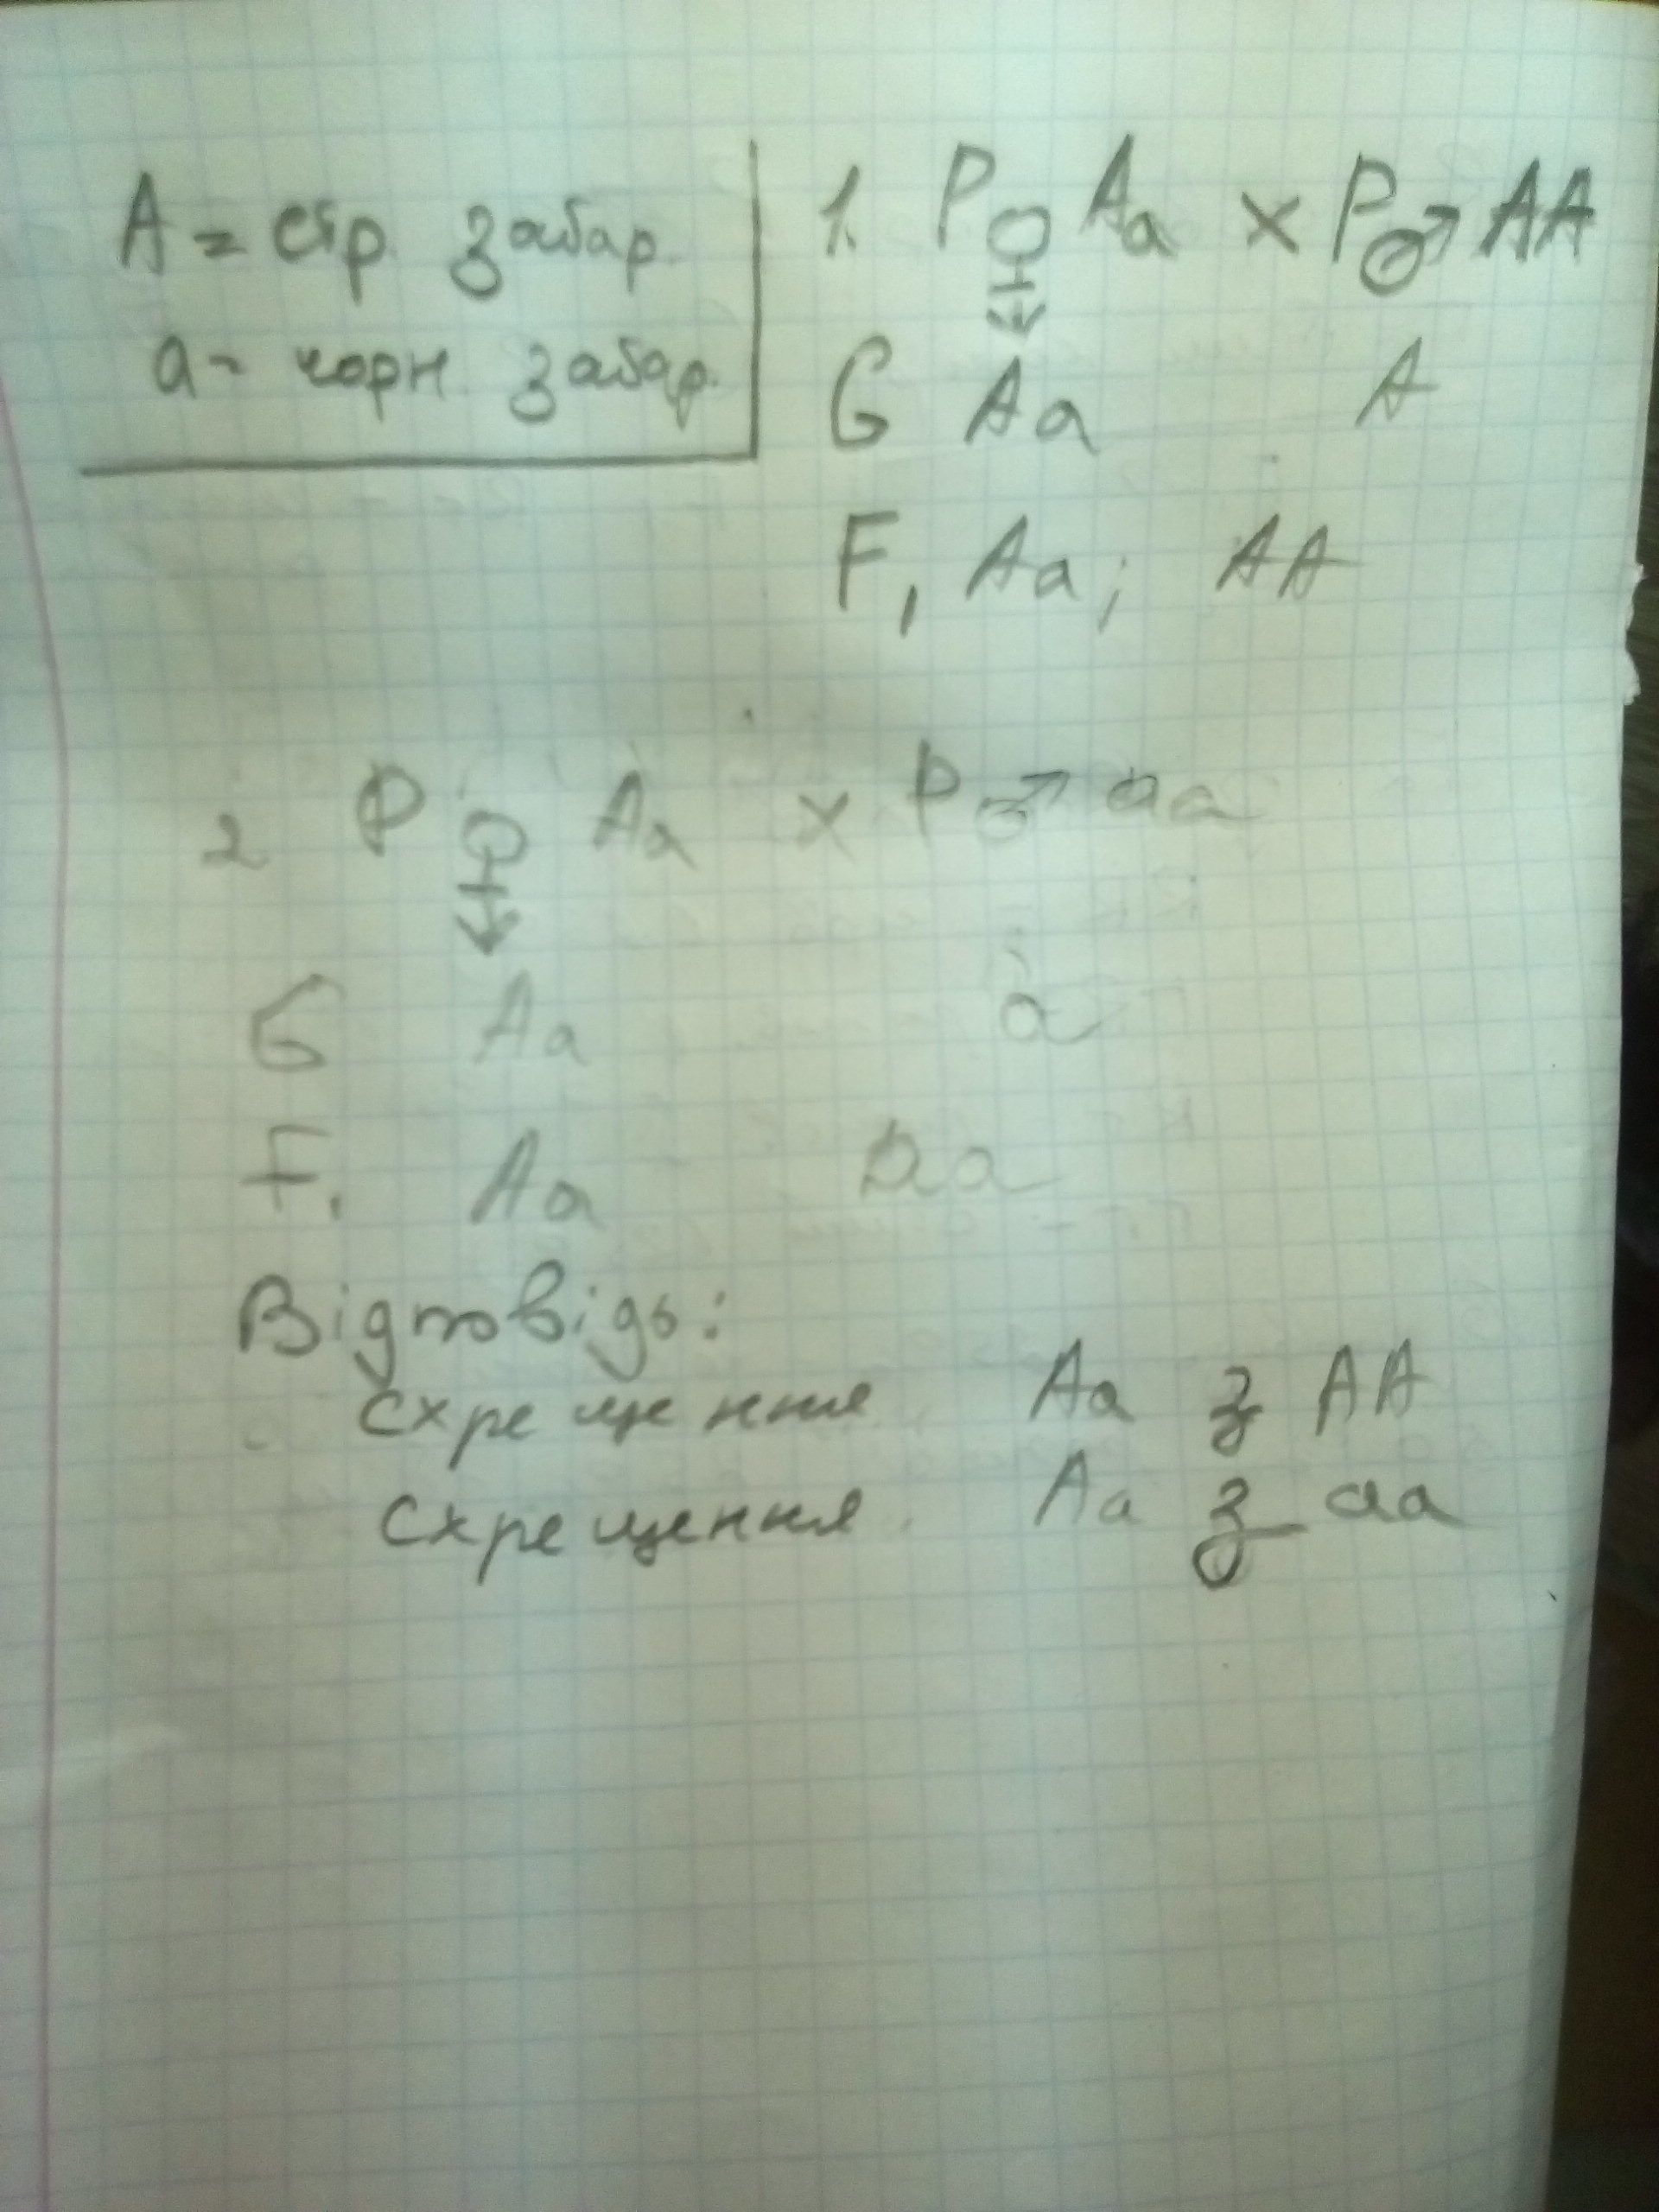 А = сір. забар.
а - чорн. забар.
1. P ♀ Aa × P ♂ AA
G Aa A
F₁ Aa; AA
2 P ♀ Aa × P ♂ aa
G Aa a
F₁ Aa aa
Відповідь:
схрещення Aa з AA
схрещення Aa з aa